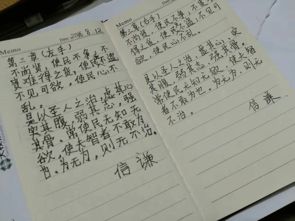 Memo
第三章(左手)
不尚贤，使民不争；不
贵难得之货，使民不为盗；
不见可欲，使民心不
乱。
是以圣人之治，虚其心，
实其腹，弱其志，强
其骨，常使民无知无
欲，使夫智者不敢为
也。为无为，则无不治。
信谦
Memo
第三章(右手)
不尚贤，使民不争；不贵难
得之货，使民不为盗；不见可
欲，使民心不乱。
是以圣人之治，虚其心，
实其腹，弱其志，强其骨，
常使民无知无欲，使夫智
者不敢为也。为无为，则无
不治。
信谦